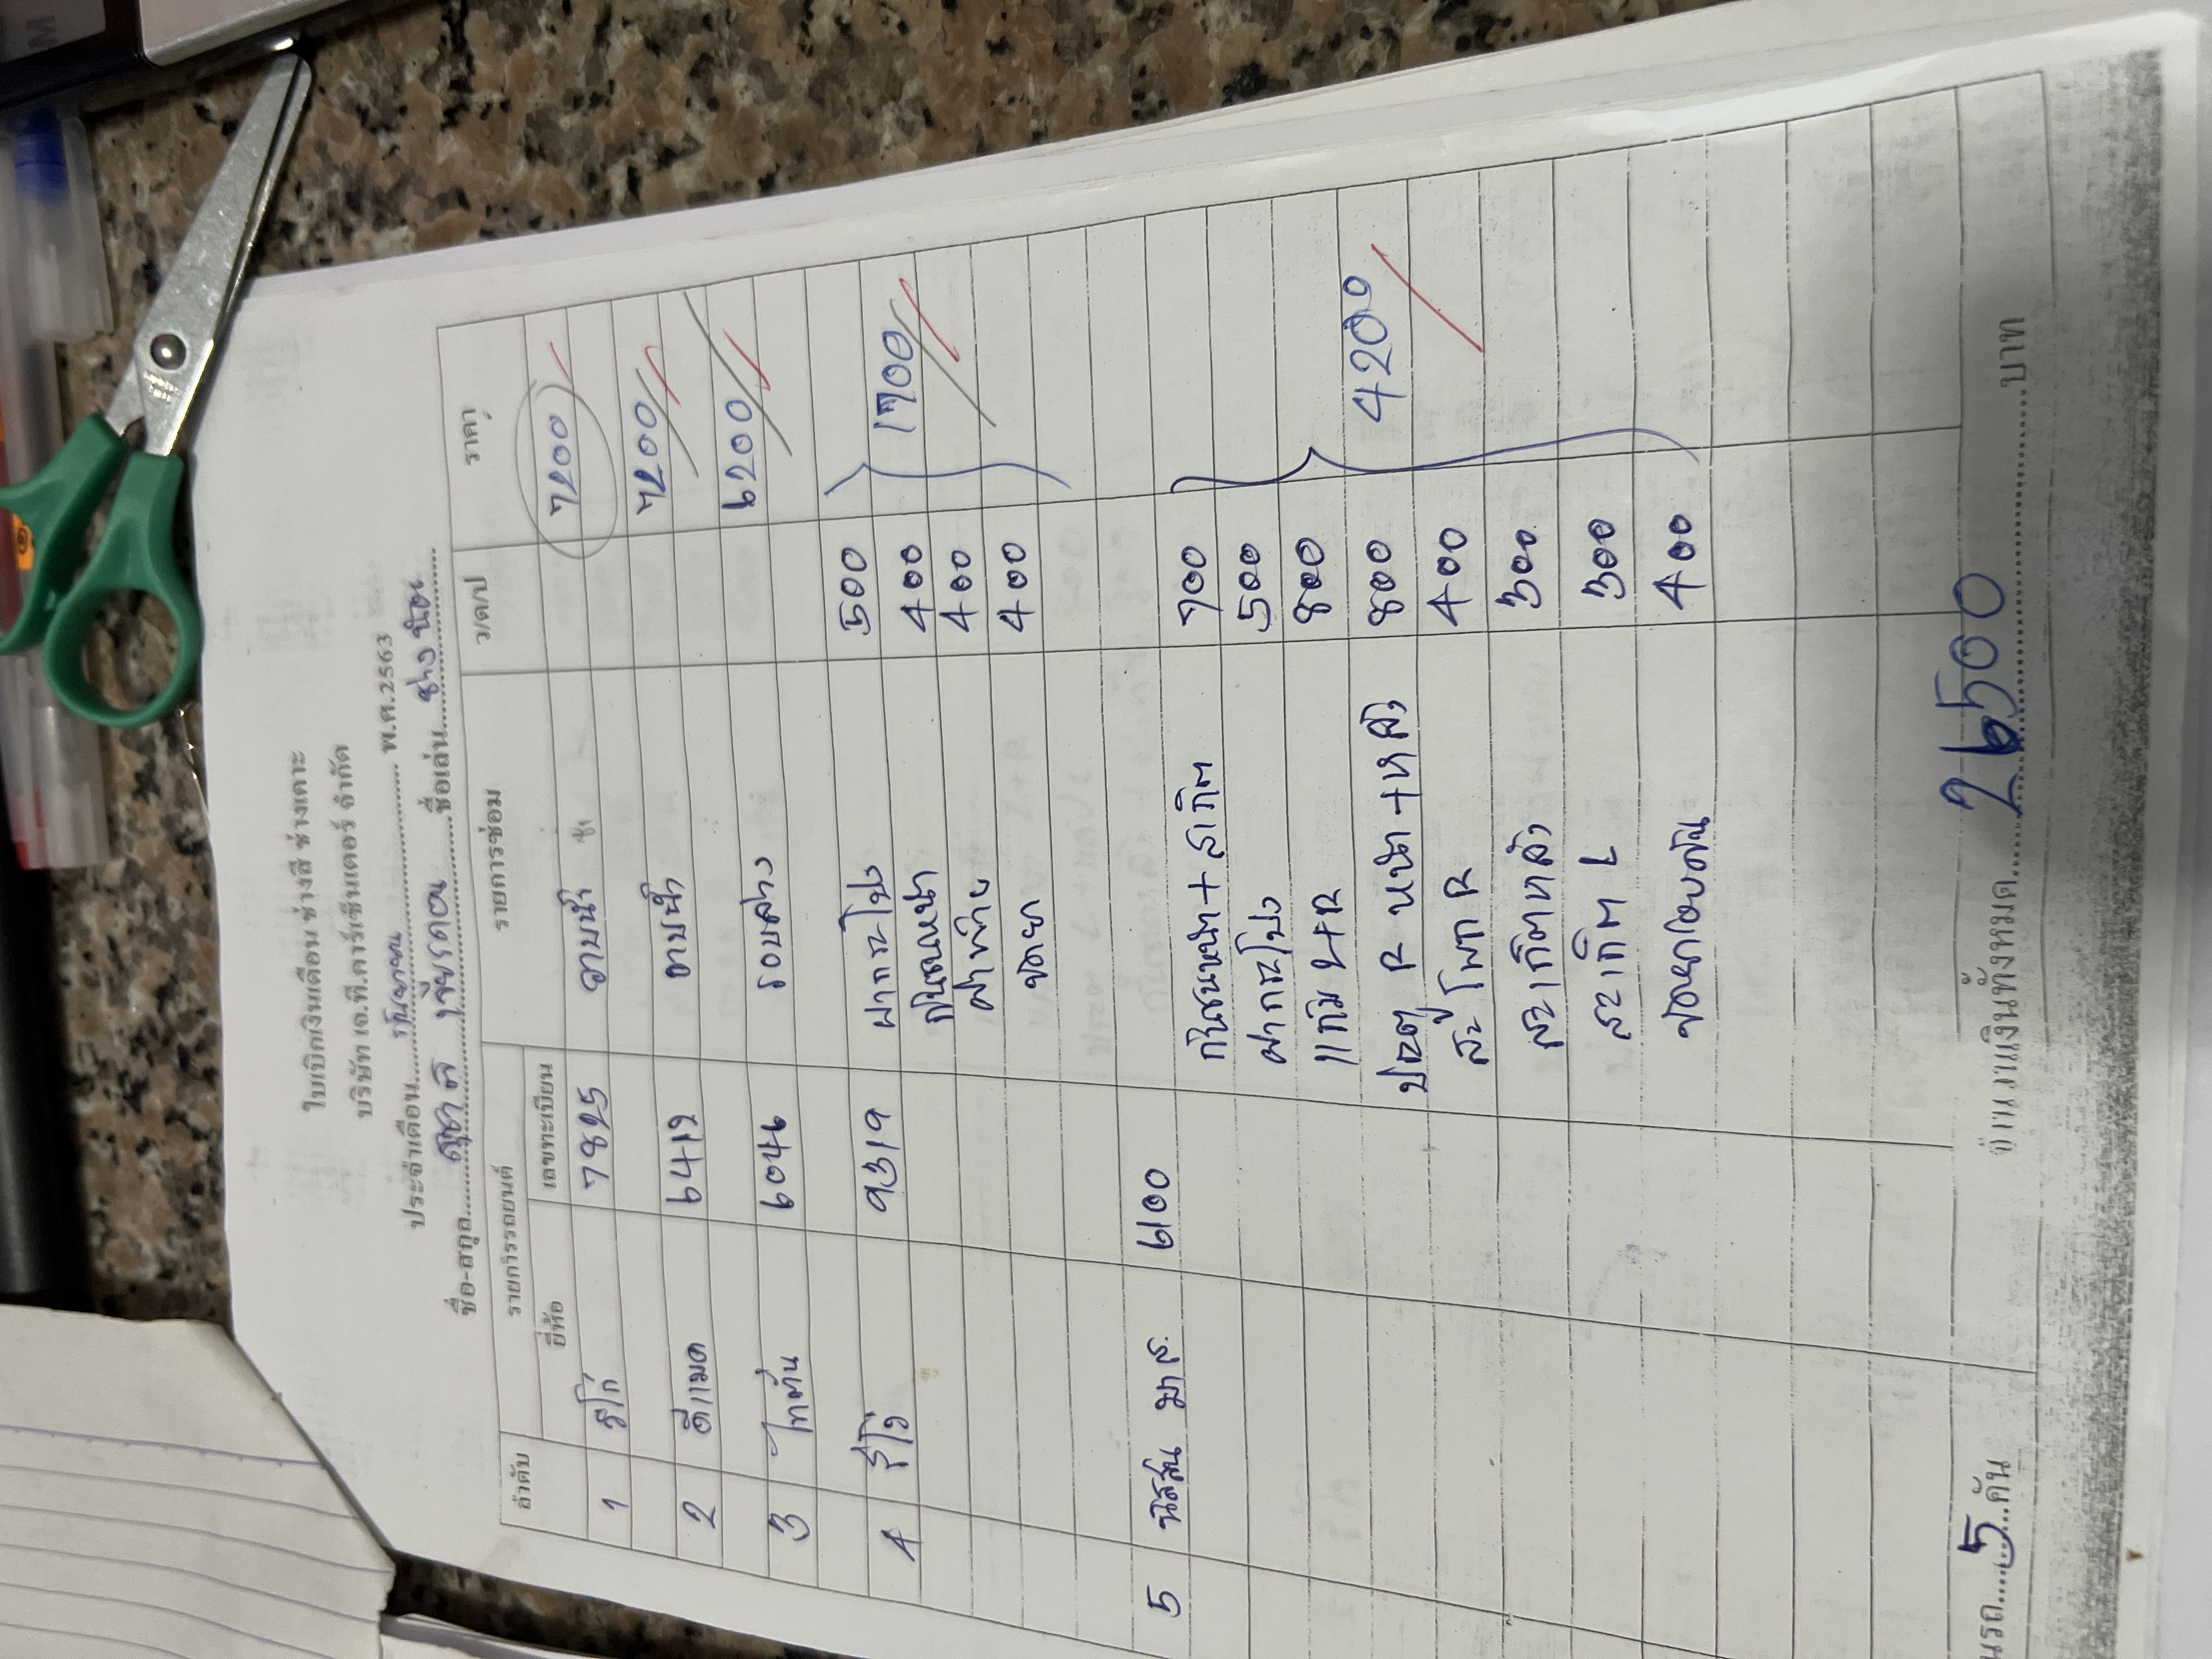 ใบเบิกเงินเดือน ช่างสี ช่างเคาะ
บริษัท เอ.ที.คาร์เซ็นเตอร์ จำกัด
ประจำเดือน กันยายน พ.ศ.2563
ชื่อ-สกุล ชื่อเล่น ช่าง น้อย
ลำดับ รายการรถยนต์ รายการซ่อม ว/ด/ป ราคา
ยี่ห้อ เลขทะเบียน
1 รีโก้ 7825 อาบน้ำ 7200
2 ดีแมค 6419 อาบน้ำ 7200
3 ไททั่น 6046 รอบสาง 6200
4 รีโว่ 9319 ฝากระโปง 500
กันชนหน้า 400 1700
ฝาท้าย 400
400
5 นิสสัน มาส. 6100
กันชนหน้า + สเกิต 700
ฝากระโปง 500
แก้ม L+R 800
ประตู R หน้า+หลัง 800 4200
สะโพก R 400
สะเกิตหลัง 300
สะเกิต L 300
400
นรถ 5 คัน จำนวนเงินทั้งหมด 26500 บาท